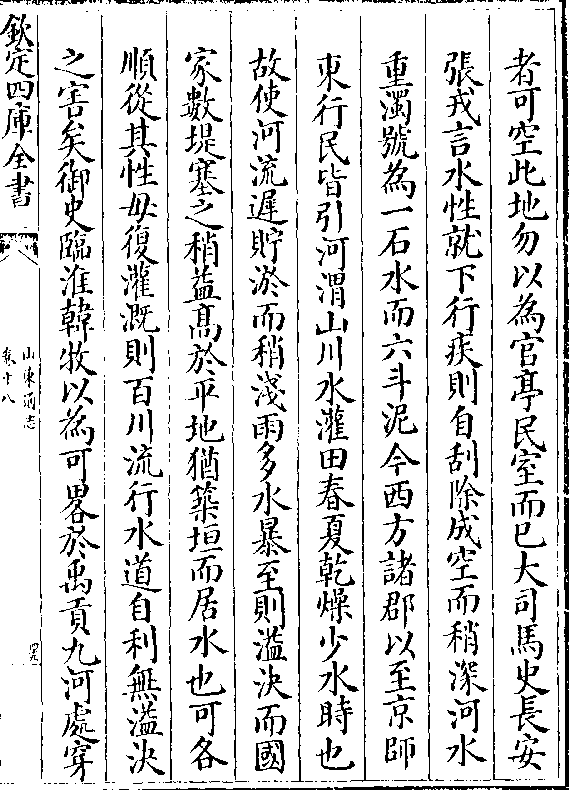 者可空此地勿以為官亭民室而已大司馬史長安
張戎言水性就下行疾則自刮除成空而稍深河水
重濁號為一石水而六斗泥今西方諸郡以至京師
東行民皆引河渭山川水灌田春夏乾燥少水時也
故使河流遲貯淤而稍淺雨多水暴至則溢決而國
家數堤塞之稍益髙於平地猶築垣而居水也可各
順從其性毋復灌溉則百川流行水道自利無溢決
之害矣御史臨淮韓牧以為可畧於禹貢九河處穿
欽定四庫全書
山東通志
卷十八
四九